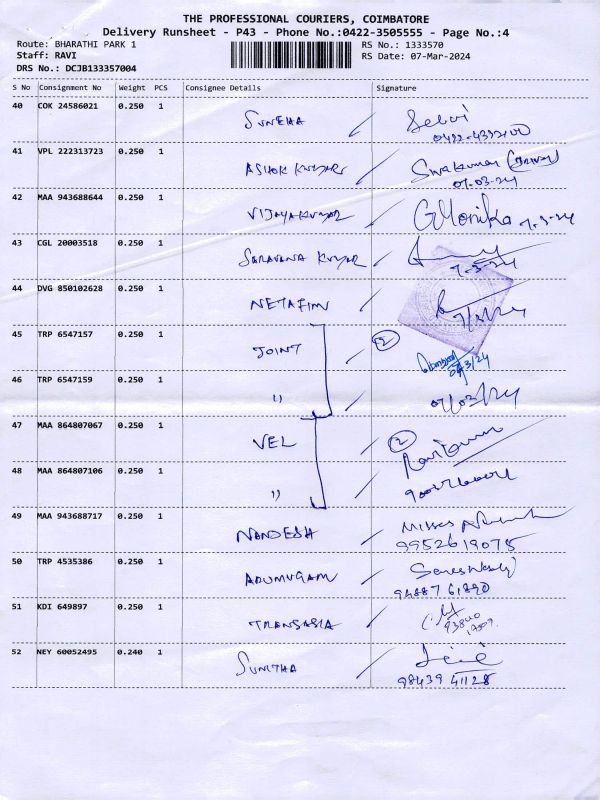 THE PROFESSIONAL COURIERS, COIMBATORE
Delivery Runsheet - P43 - Phone No.:0422-3505555 - Page No.:4
Route: BHARATHI PARK 1 RS No.: 1333570
Staff: RAVI RS Date: 07-Mar-2024
DRS No.: DCJB133357004
S No Consignment No Weight PCS Consignee Details Signature
40 COK 24586021 0.250 1 SUNEHA Selvi
41 VPL 222313723 0.250 1 ASHOK KUMAR Sivakumar
07-03-24
42 MAA 943688644 0.250 1 VIJAYAKUMAR G Monika 7-3-24
43 CGL 20003518 0.250 1 SARAVANA KUMAR
7-3-24
44 DVG 850102628 0.250 1 NETAFIM
7/3/24
45 TRP 6547157 0.250 1 JOINT 2
46 TRP 6547159 0.250 1 " 07/03/24
47 MAA 864807067 0.250 1 VEL 2
48 MAA 864807106 0.250 1 "
49 MAA 943688717 0.250 1 NANDESH
9952619075
50 TRP 4535386 0.250 1 ARUMUGAM
94887 61890
51 KDI 649897 0.250 1 TRANSASIA
52 NEY 60052495 0.240 1 SUNITHA
98439 41128